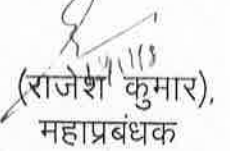 (राजेश कुमार),
महाप्रबंधक